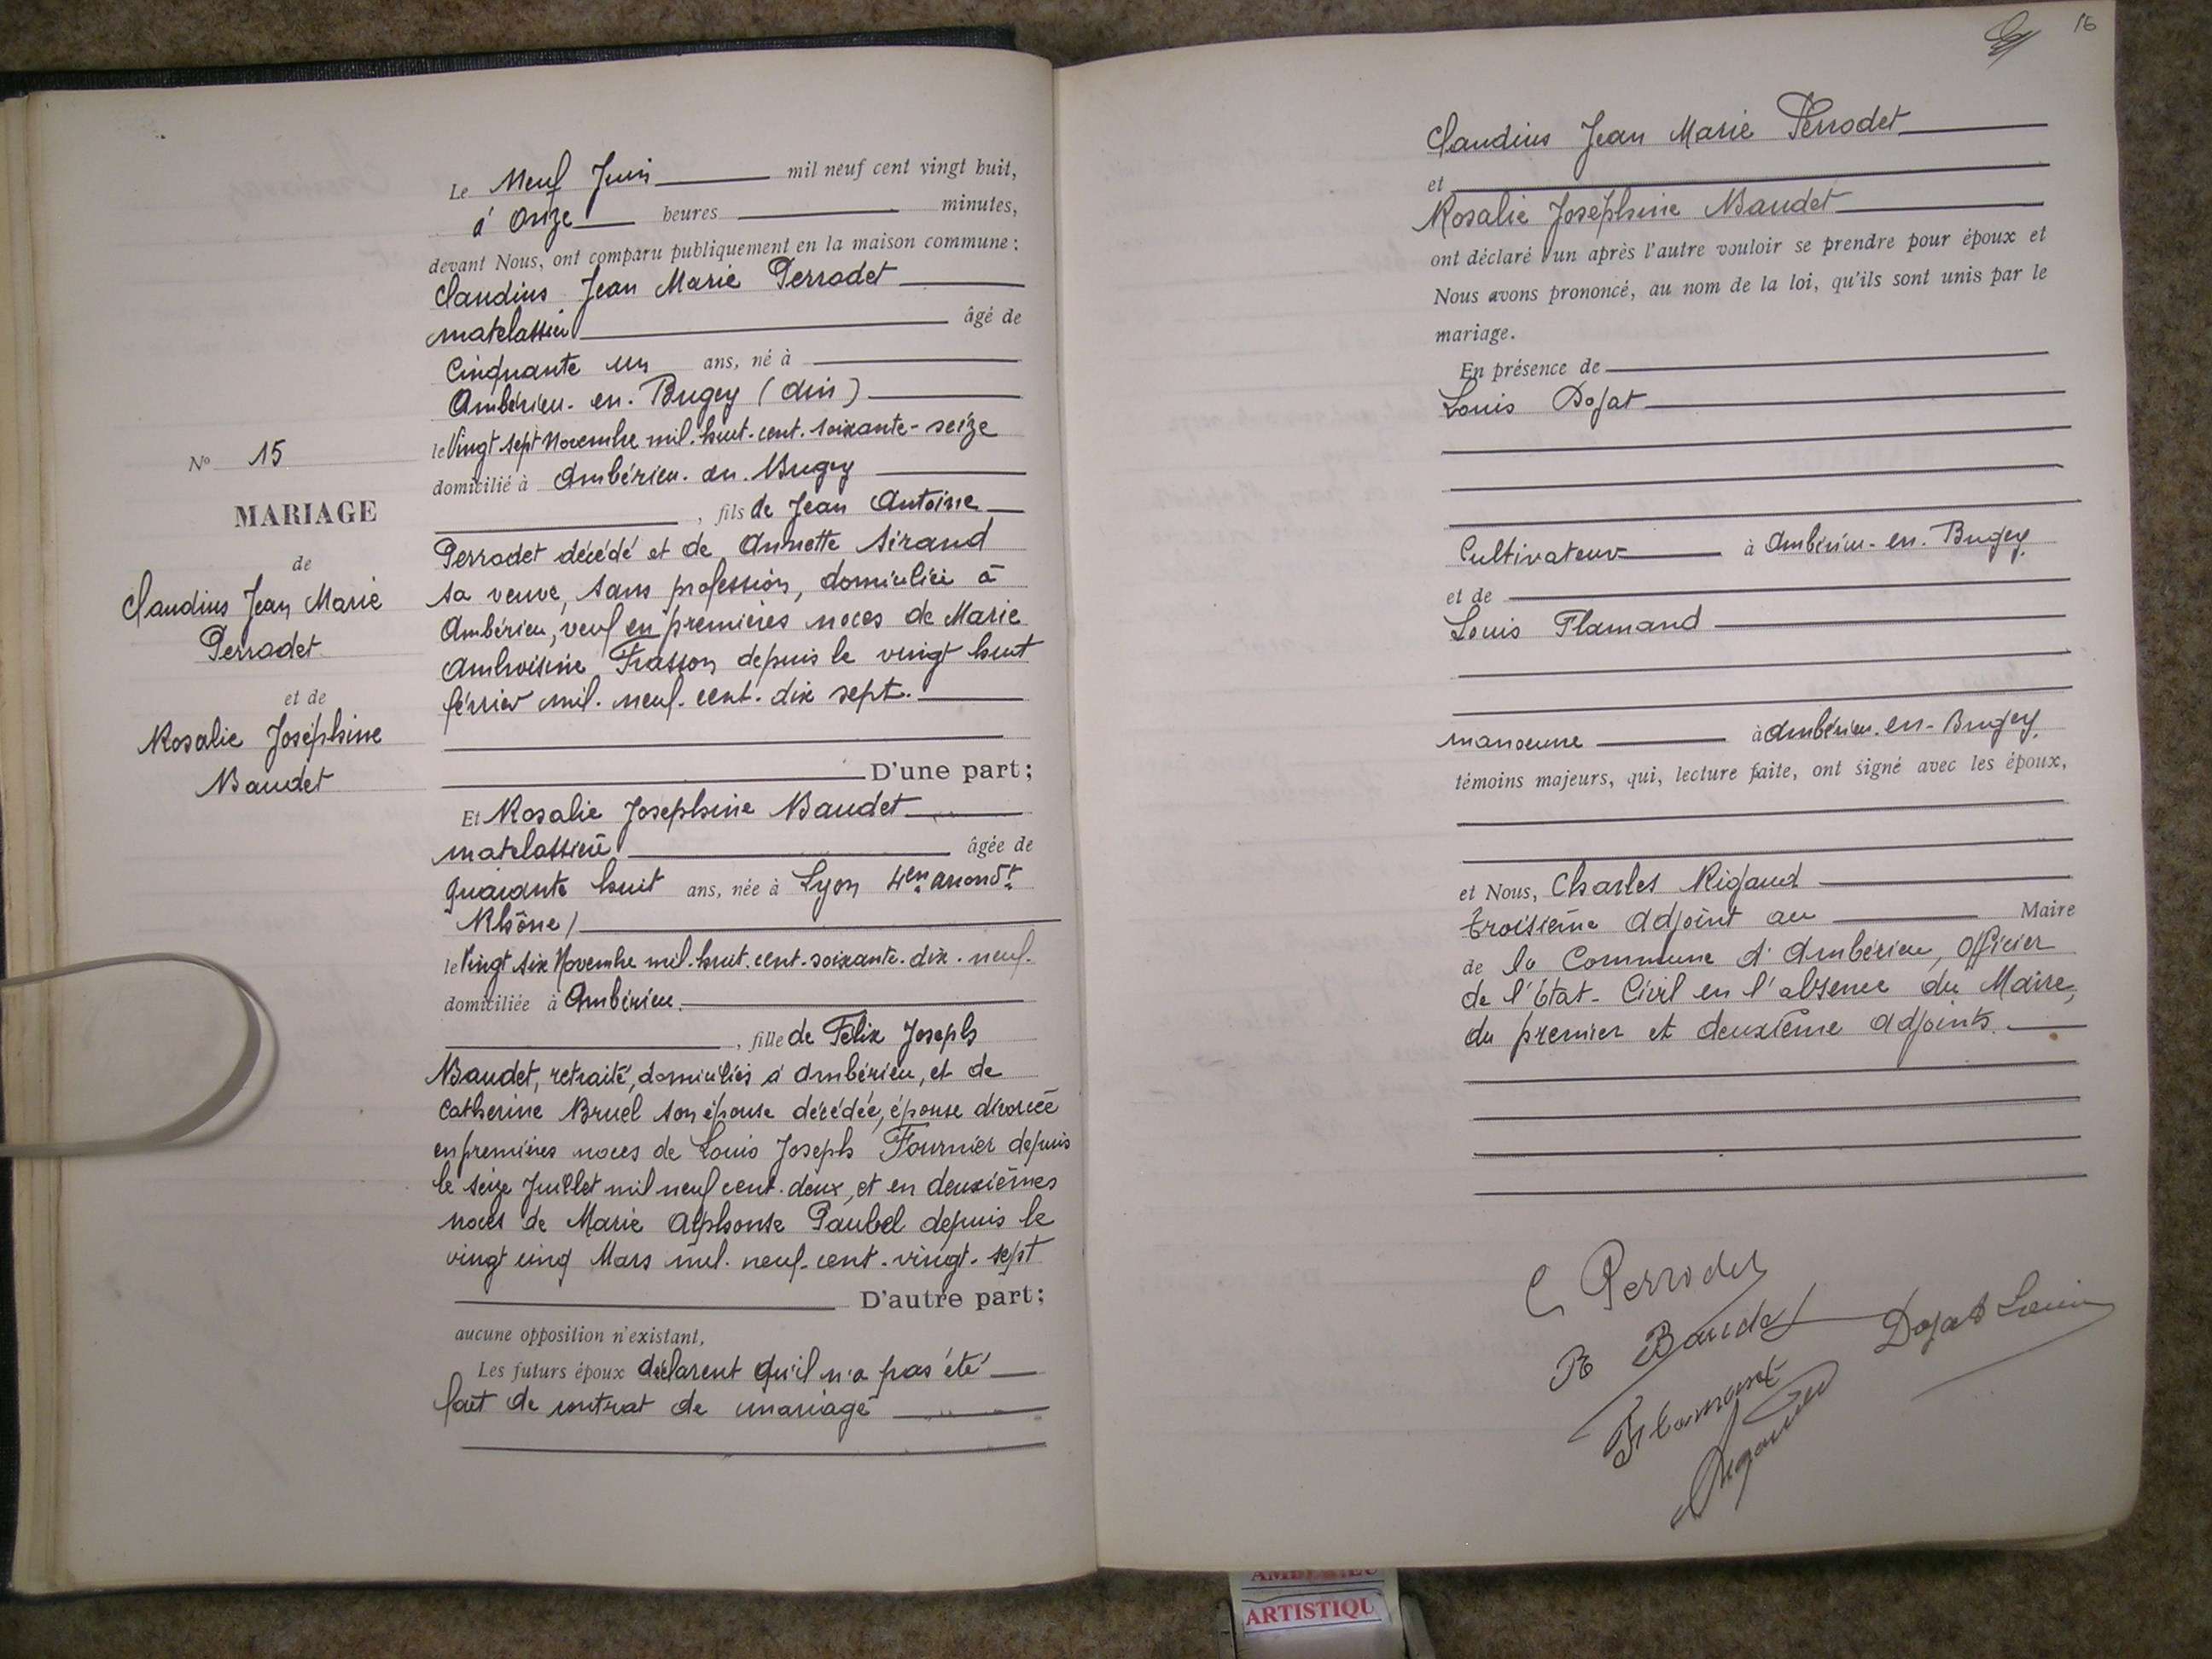 Le Neuf Juin mil neuf cent vingt huit,
à Onze heures minutes,
devant Nous, ont comparu publiquement en la maison commune :
Claudius Jean Marie Perrodet
matelassier âgé de
Cinquante un ans, né à
Ambérieu-en-Bugey (Ain)
le Vingt sept Novembre mil-huit-cent-soixante-seize
domicilié à Ambérieu-en-Bugey
, fils de Jean Antoine
Perrodet décédé et de Annette Sirand
sa veuve, sans profession, domiciliée à
Ambérieu, veuf en premières noces de Marie
Ambroisine Frasson depuis le vingt huit
février mil-neuf-cent-dix sept.
D'une part ;
Et Rosalie Josephine Baudet
matelassière âgée de
quarante huit ans, née à Lyon 4en arrondt
Rhône)
le Vingt six Novembre mil-huit-cent-soixante-dix-neuf-
domiciliée à Ambérieu
, fille de Félix Joseph
Baudet, retraité, domicilié à Ambérieu, et de
Catherine Bruel son épouse décédée, épouse divorcée
en premières noces de Louis Joseph Fournier depuis
le seize Juillet mil neuf cent-deux, et en deuxièmes
noces de Marie Alphonse Paubel depuis le
vingt cinq Mars mil-neuf-cent-vingt-sept
D'autre part ;
aucune opposition n'existant,
Les futurs époux déclarent qu'il n'a pas été
fait de contrat de mariage
No 15
MARIAGE
de
Claudius Jean Marie
Perrodet
et de
Rosalie Joséphine
Baudet
16
Claudius Jean Marie Perrodet
et
Rosalie Joséphine Baudet
ont déclaré l'un après l'autre vouloir se prendre pour époux et
Nous avons prononcé, au nom de la loi, qu'ils sont unis par le
mariage.
En présence de
Louis Dojat
Cultivateur à Ambérieu-en-Bugey
et de
Louis Flamand
manoeuvre à Ambérieu-en-Bugey
témoins majeurs, qui, lecture faite, ont signé avec les époux,
et Nous, Charles Rigaud
troisième adjoint au Maire
de la Commune d'Ambérieu, Officier
de l'Etat-Civil en l'absence du Maire,
du premier et deuxième adjoints.
C Perrodet
R Baudet
Dojat Louis
Flamand
Rigaud
ARTISTIQU